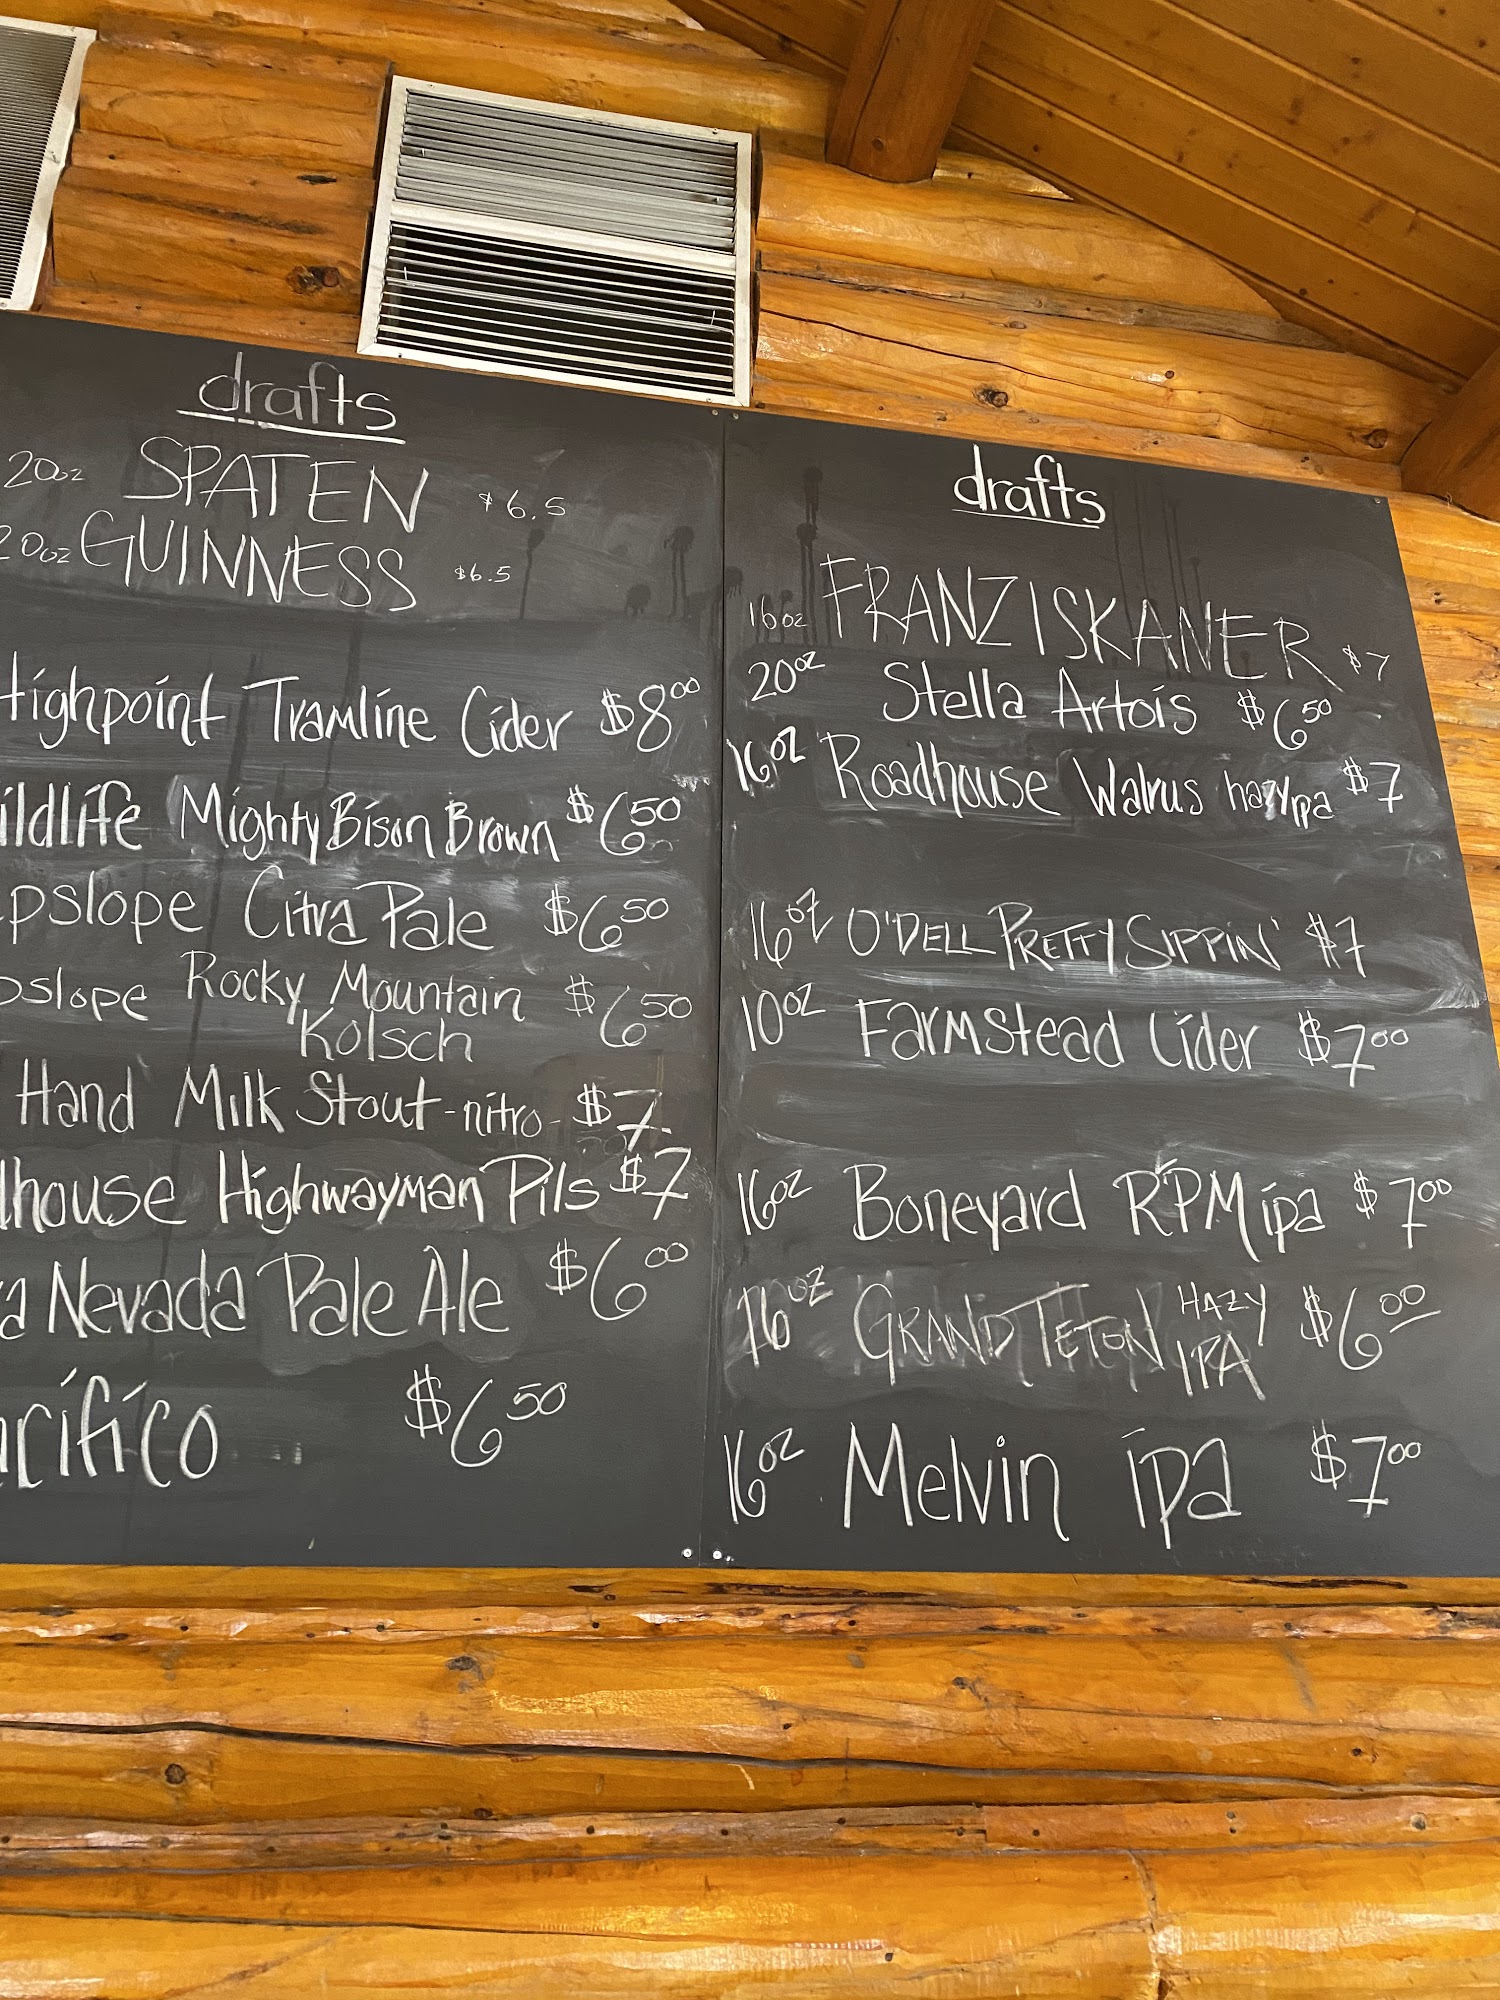 drafts
20oz SPATEN $6.5
20oz GUINNESS $6.5
Highpoint Tramline Cider $8⁰⁰
ildlife Mighty Bison Brown $6⁵⁰
pslope Citra Pale $6⁵⁰
pslope Rocky Mountain $6⁵⁰
Kolsch
Hand Milk Stout -nitro- $7
dhouse Highwayman Pils $7
a Nevada Pale Ale $6⁰⁰
acífico $6⁵⁰
drafts
16oz FRANZISKANER $7
20oz Stella Artois $6⁵⁰
16oz Roadhouse Walrus hazy ipa $7
16oz O'DELL PRETTY SIPPIN' $7
10oz FARMStead Cider $7⁰⁰
16oz Boneyard RPM ipa $7⁰⁰
16oz GRAND TETON HAZY IPA $6⁰⁰
16oz Melvin ipa $7⁰⁰